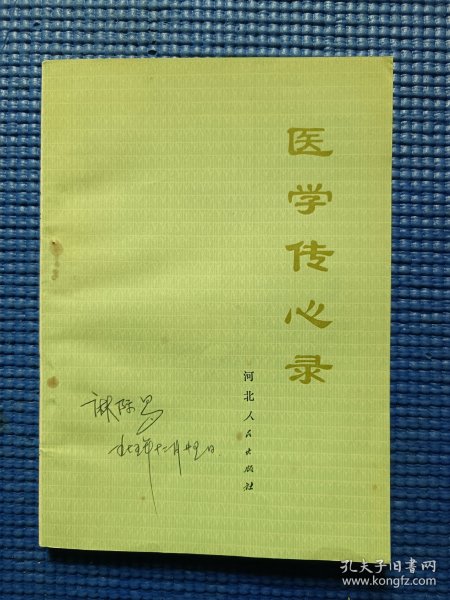 医学传心录
河北人民出版社
孔夫子旧书网
www.kongfz.com